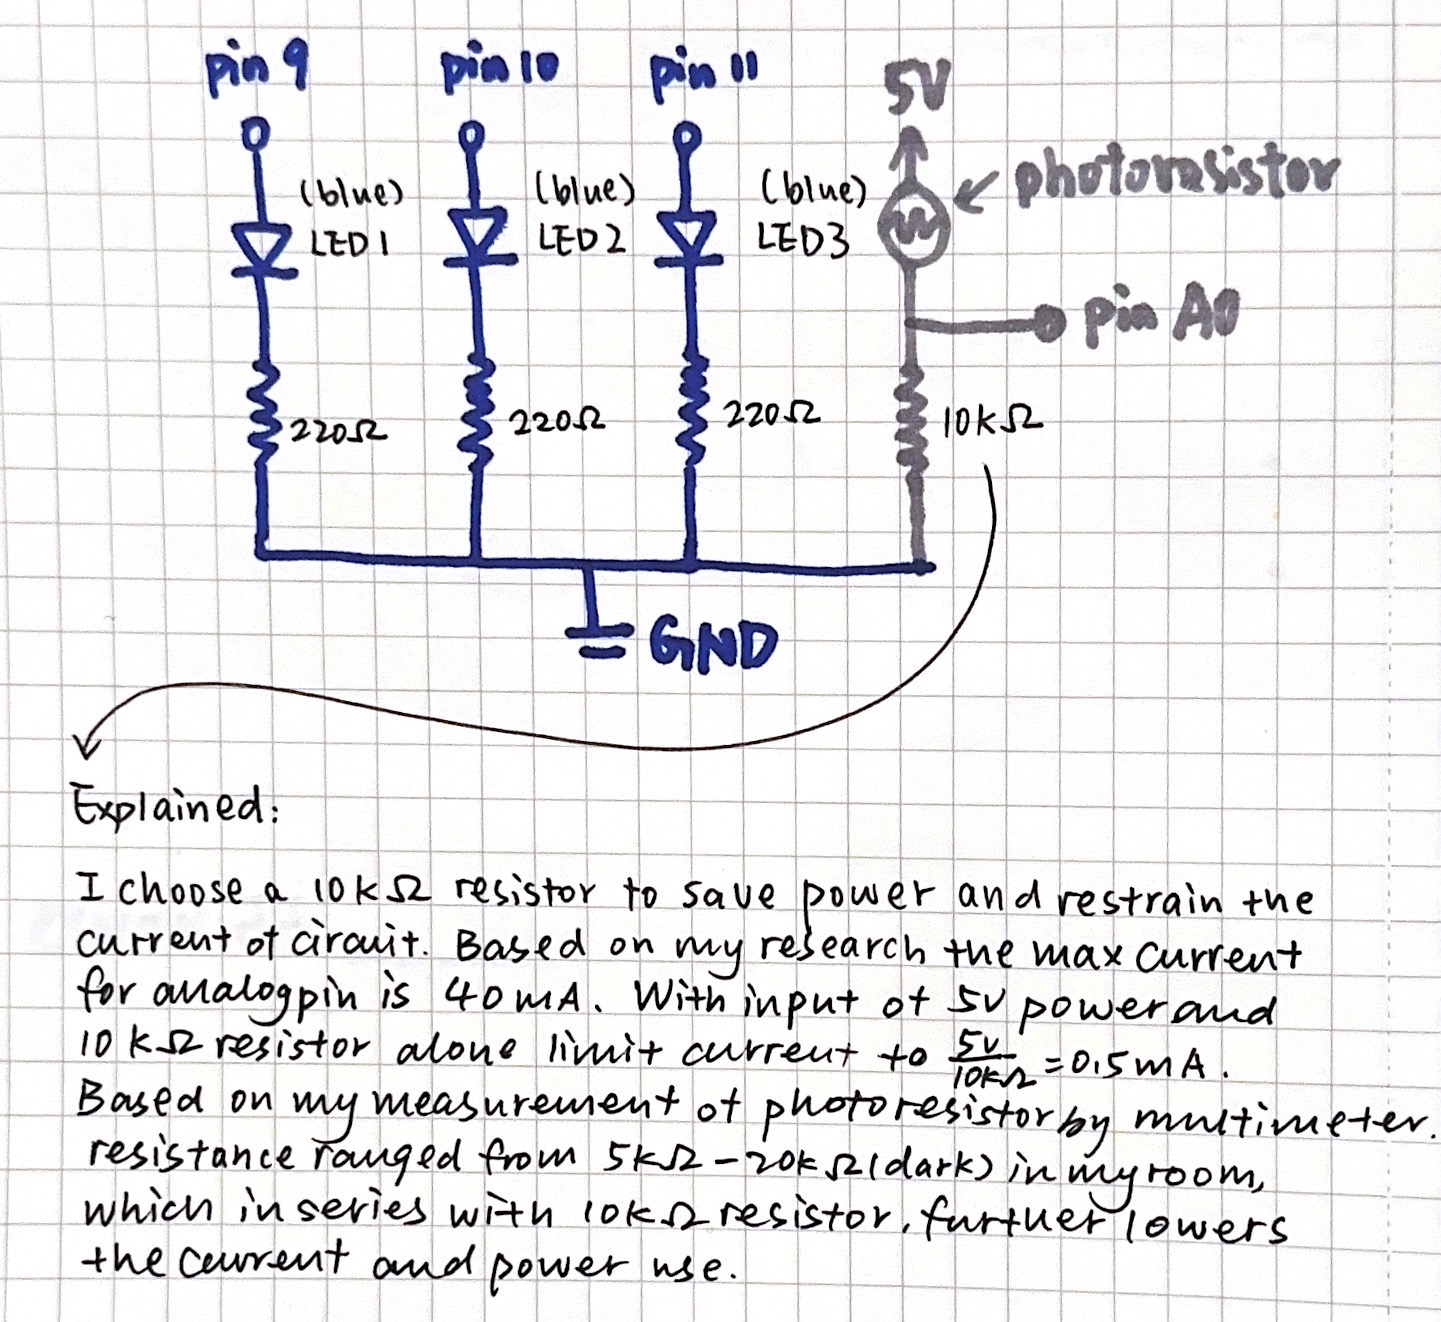 pin 9 pin 10 pin 11 5V
(blue) (blue) (blue) photoresistor
LED1 LED2 LED3
pin A0
220Ω 220Ω 220Ω 10kΩ
GND
Explained:
I choose a 10kΩ resistor to save power and restrain the
current of circuit. Based on my research the max current
for analog pin is 40mA. With input of 5V power and
10kΩ resistor alone limit current to 5V/10kΩ = 0.5mA.
Based on my measurement of photoresistor by multimeter.
resistance ranged from 5kΩ - 20kΩ (dark) in my room,
which in series with 10kΩ resistor, further lowers
the current and power use.